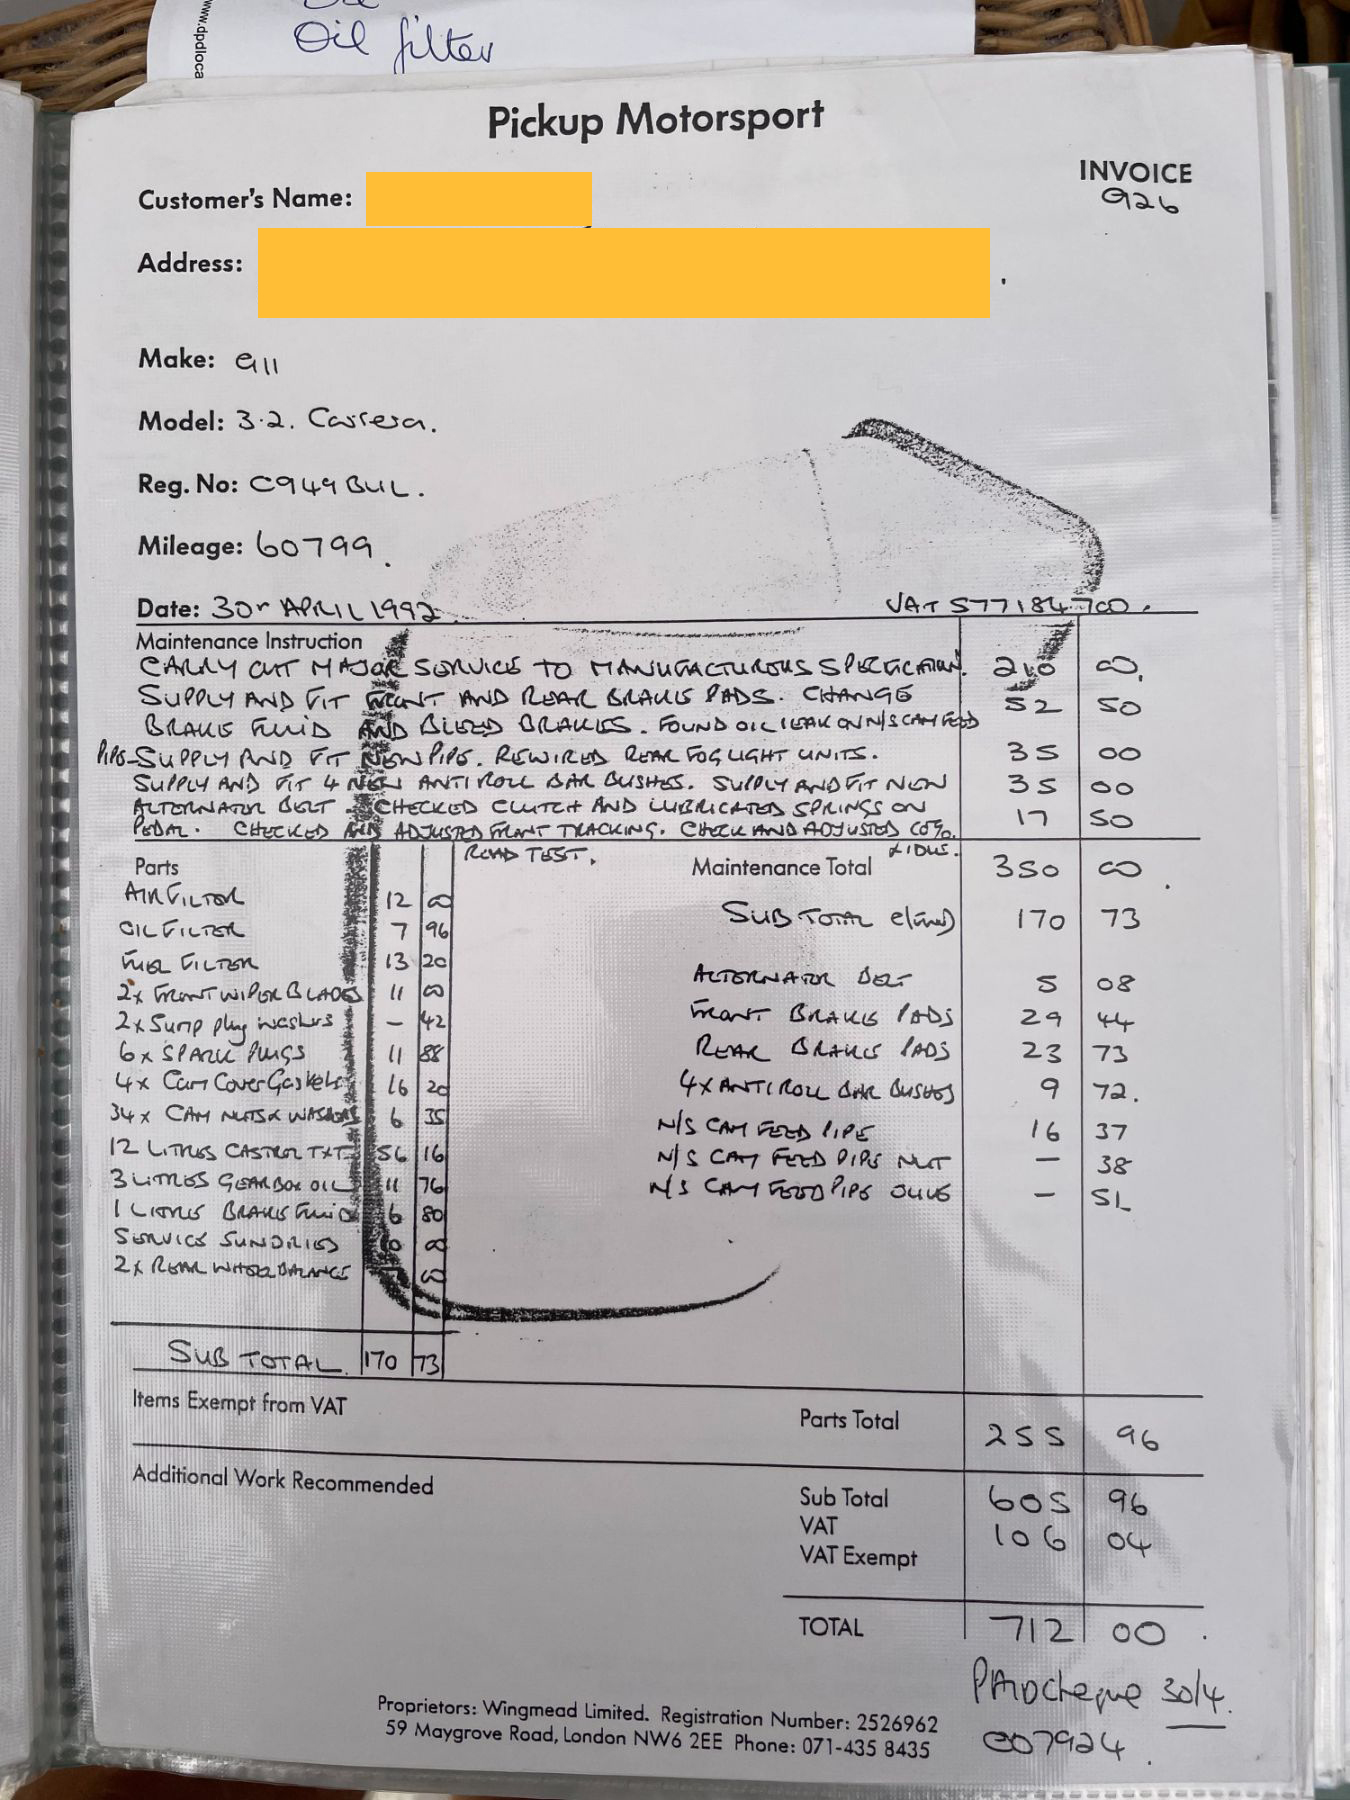 www.dpdloca
Oil filter
Pickup Motorsport
INVOICE
926
Customer's Name:
Address:
Make: 911
Model: 3.2. Carrera.
Reg. No: C949 BUL.
Mileage: 60799.
Date: 30th APRIL 1992 VAT 577184700.
Maintenance Instruction
CARRY OUT MAJOR SERVICE TO MANUFACTURERS SPECIFICATION. 210 00.
SUPPLY AND FIT FRONT AND REAR BRAKE PADS. CHANGE 52 50
BRAKE FLUID AND BLEED BRAKES. FOUND OIL LEAK ON N/S CAM FEED
PIPE - SUPPLY AND FIT NEW PIPE. REWIRED REAR FOG LIGHT UNITS. 35 00
SUPPLY AND FIT 4 NEW ANTI ROLL BAR BUSHES. SUPPLY AND FIT NEW 35 00
ALTERNATOR BELT. CHECKED CLUTCH AND LUBRICATED SPRINGS ON
PEDAL. CHECKED AND ADJUSTED FRONT TRACKING. CHECK AND ADJUSTED CO%. 17 50
& IDLE.
ROAD TEST.
Maintenance Total 350 00.
Parts
AIR FILTER 12 00
OIL FILTER 7 96
FUEL FILTER 13 20
2x FRONT WIPER BLADES 11 00
2x Sump plug washers - 42
6x SPARK PLUGS 11 88
4x Cam Cover Gaskets 16 20
34x CAM NUTS & WASHERS 6 35
12 LITRES CASTROL TXT 56 16
3 LITRES GEARBOX OIL 11 76
1 LITRE BRAKE FLUID 6 80
SERVICE SUNDRIES 00
2x REAR WHEEL BALANCE 00
SUB TOTAL 170 73
SUB TOTAL 170 73
ALTERNATOR BELT 5 08
FRONT BRAKE PADS 29 44
REAR BRAKE PADS 23 73
4x ANTI ROLL BAR BUSHES 9 72.
N/S CAM FEED PIPE 16 37
N/S CAM FEED PIPE NUT - 38
N/S CAM FEED PIPE OLIVE - 51
Items Exempt from VAT
Parts Total 255 96
Additional Work Recommended
Sub Total 605 96
VAT 106 04
VAT Exempt
TOTAL 712 00.
PAID cheque 30/4.
007924.
Proprietors: Wingmead Limited. Registration Number: 2526962
59 Maygrove Road, London NW6 2EE Phone: 071-435 8435